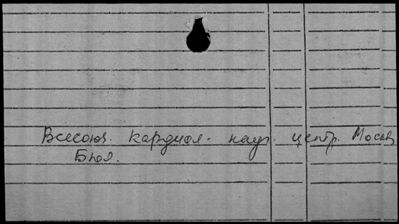 Всесоюз. кардиол. науч. центр. Москв
Бюл.